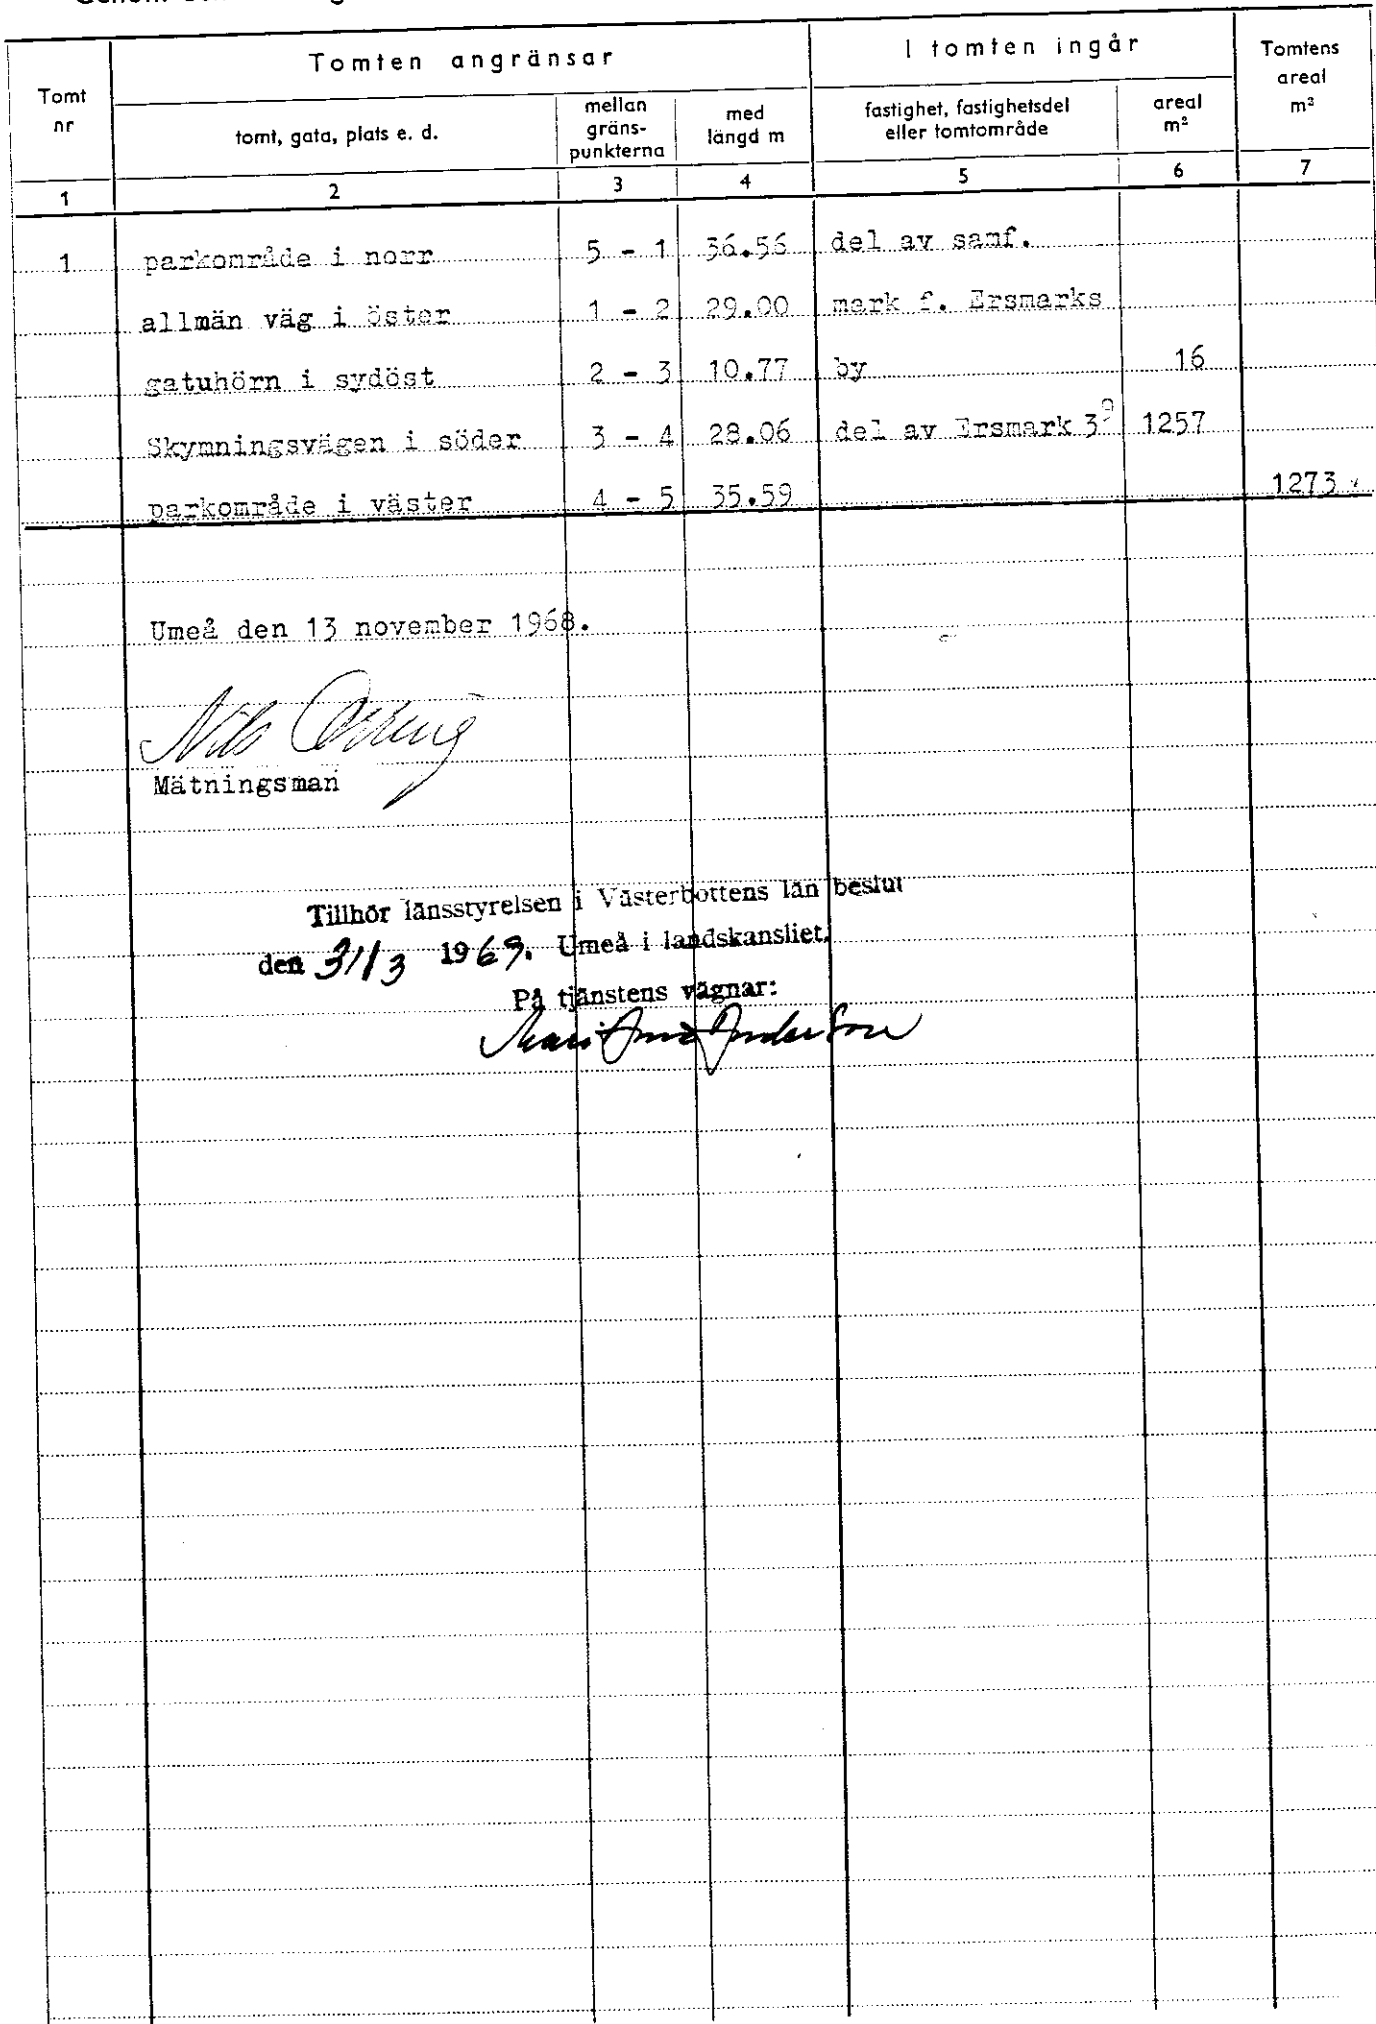 Tomt nr
Tomten angränsar
I tomten ingår
Tomtens areal m²
tomt, gata, plats e. d.
mellan gräns-punkterna
med längd m
fastighet, fastighetsdel eller tomtområde
areal m²
1 2 3 4 5 6 7
1 parkområde i norr 5 - 1 36.56 del av samf.
allmän väg i öster 1 - 2 29.00 mark f. Ersmarks
gatuhörn i sydöst 2 - 3 10.77 by 16
Skymningsvägen i söder 3 - 4 28.06 del av Ersmark 3⁹ 1257
parkområde i väster 4 - 5 35.59 1273
Umeå den 13 november 1968.
Nils
Mätningsman
Tillhör länsstyrelsen i Västerbottens län beslut
den 31/3 1969. Umeå i landskansliet.
På tjänstens vägnar: